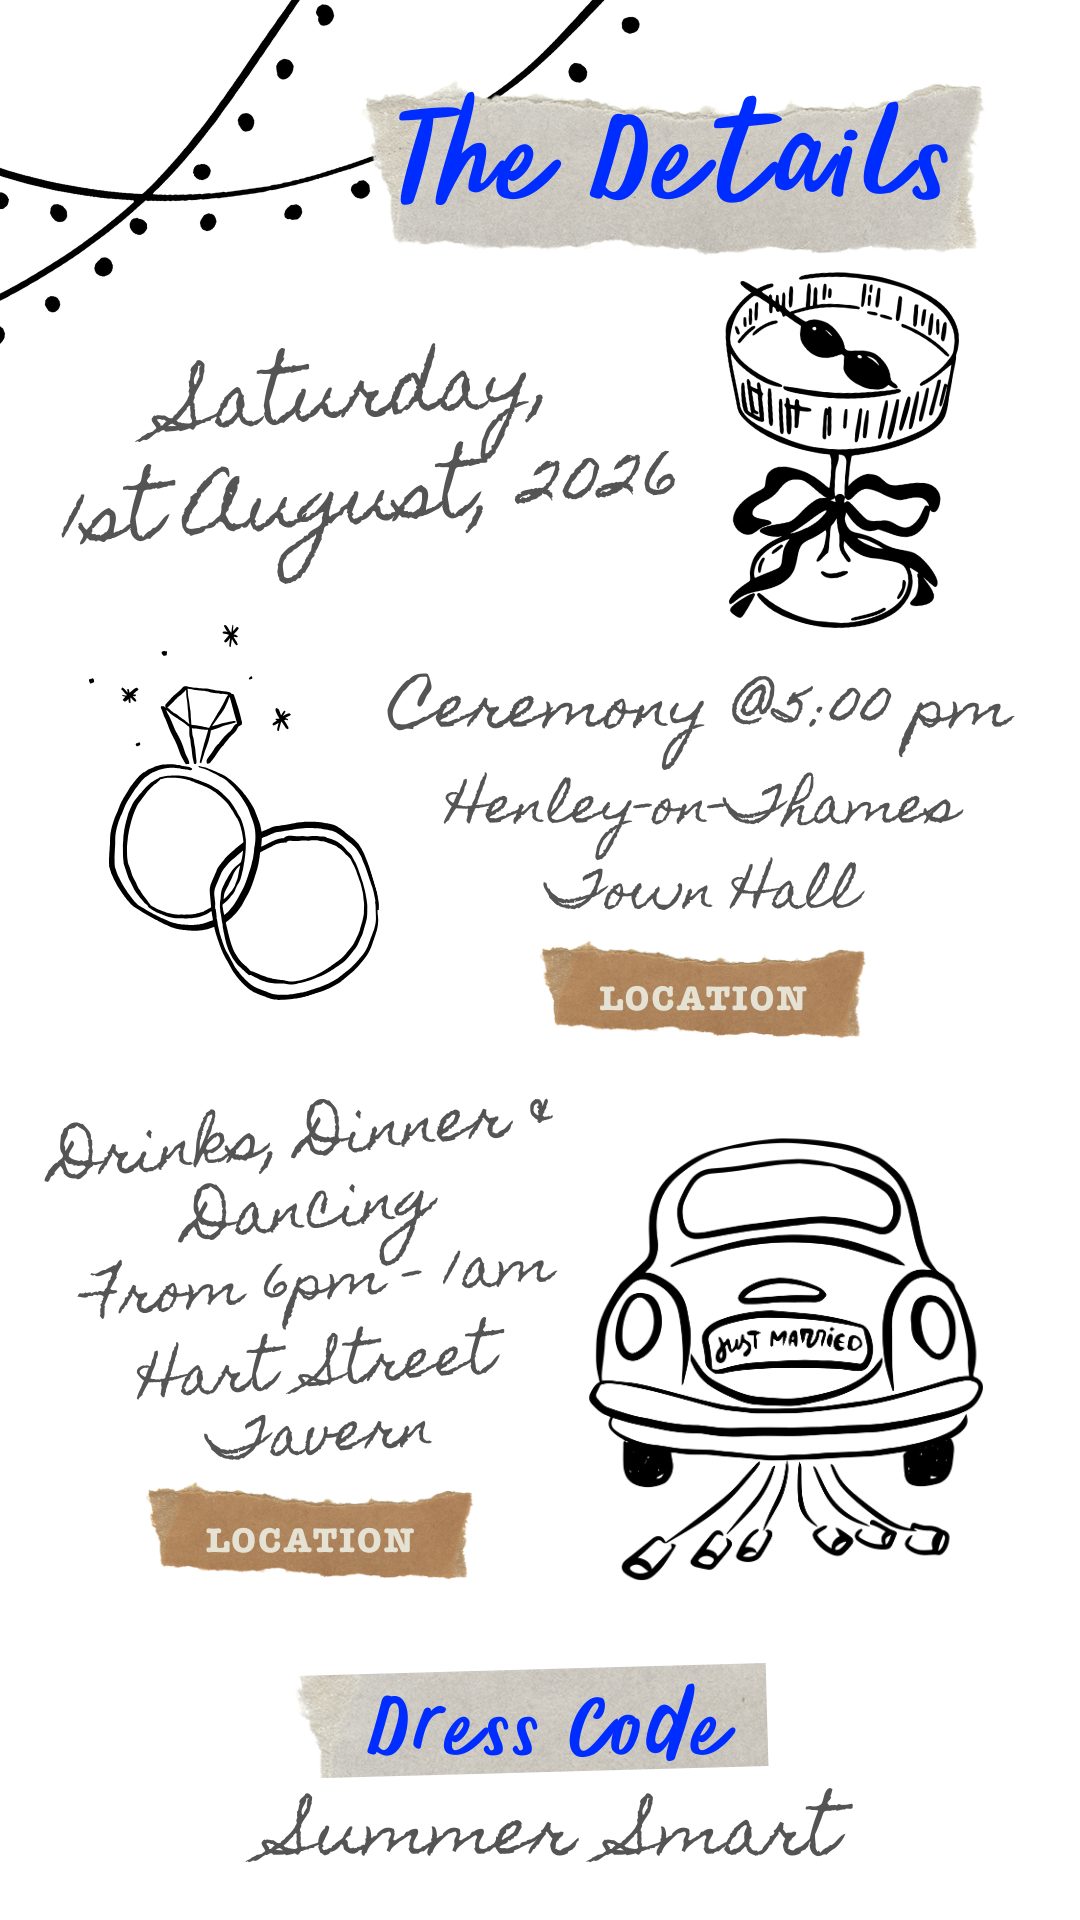 The Details
Saturday,
1st August, 2026
Ceremony @5:00 pm
Henley-on-Thames
Town Hall
LOCATION
Drinks, Dinner &
Dancing
From 6pm - 1am
Hart Street
Tavern
JUST MARRiED
LOCATION
Dress Code
Summer Smart